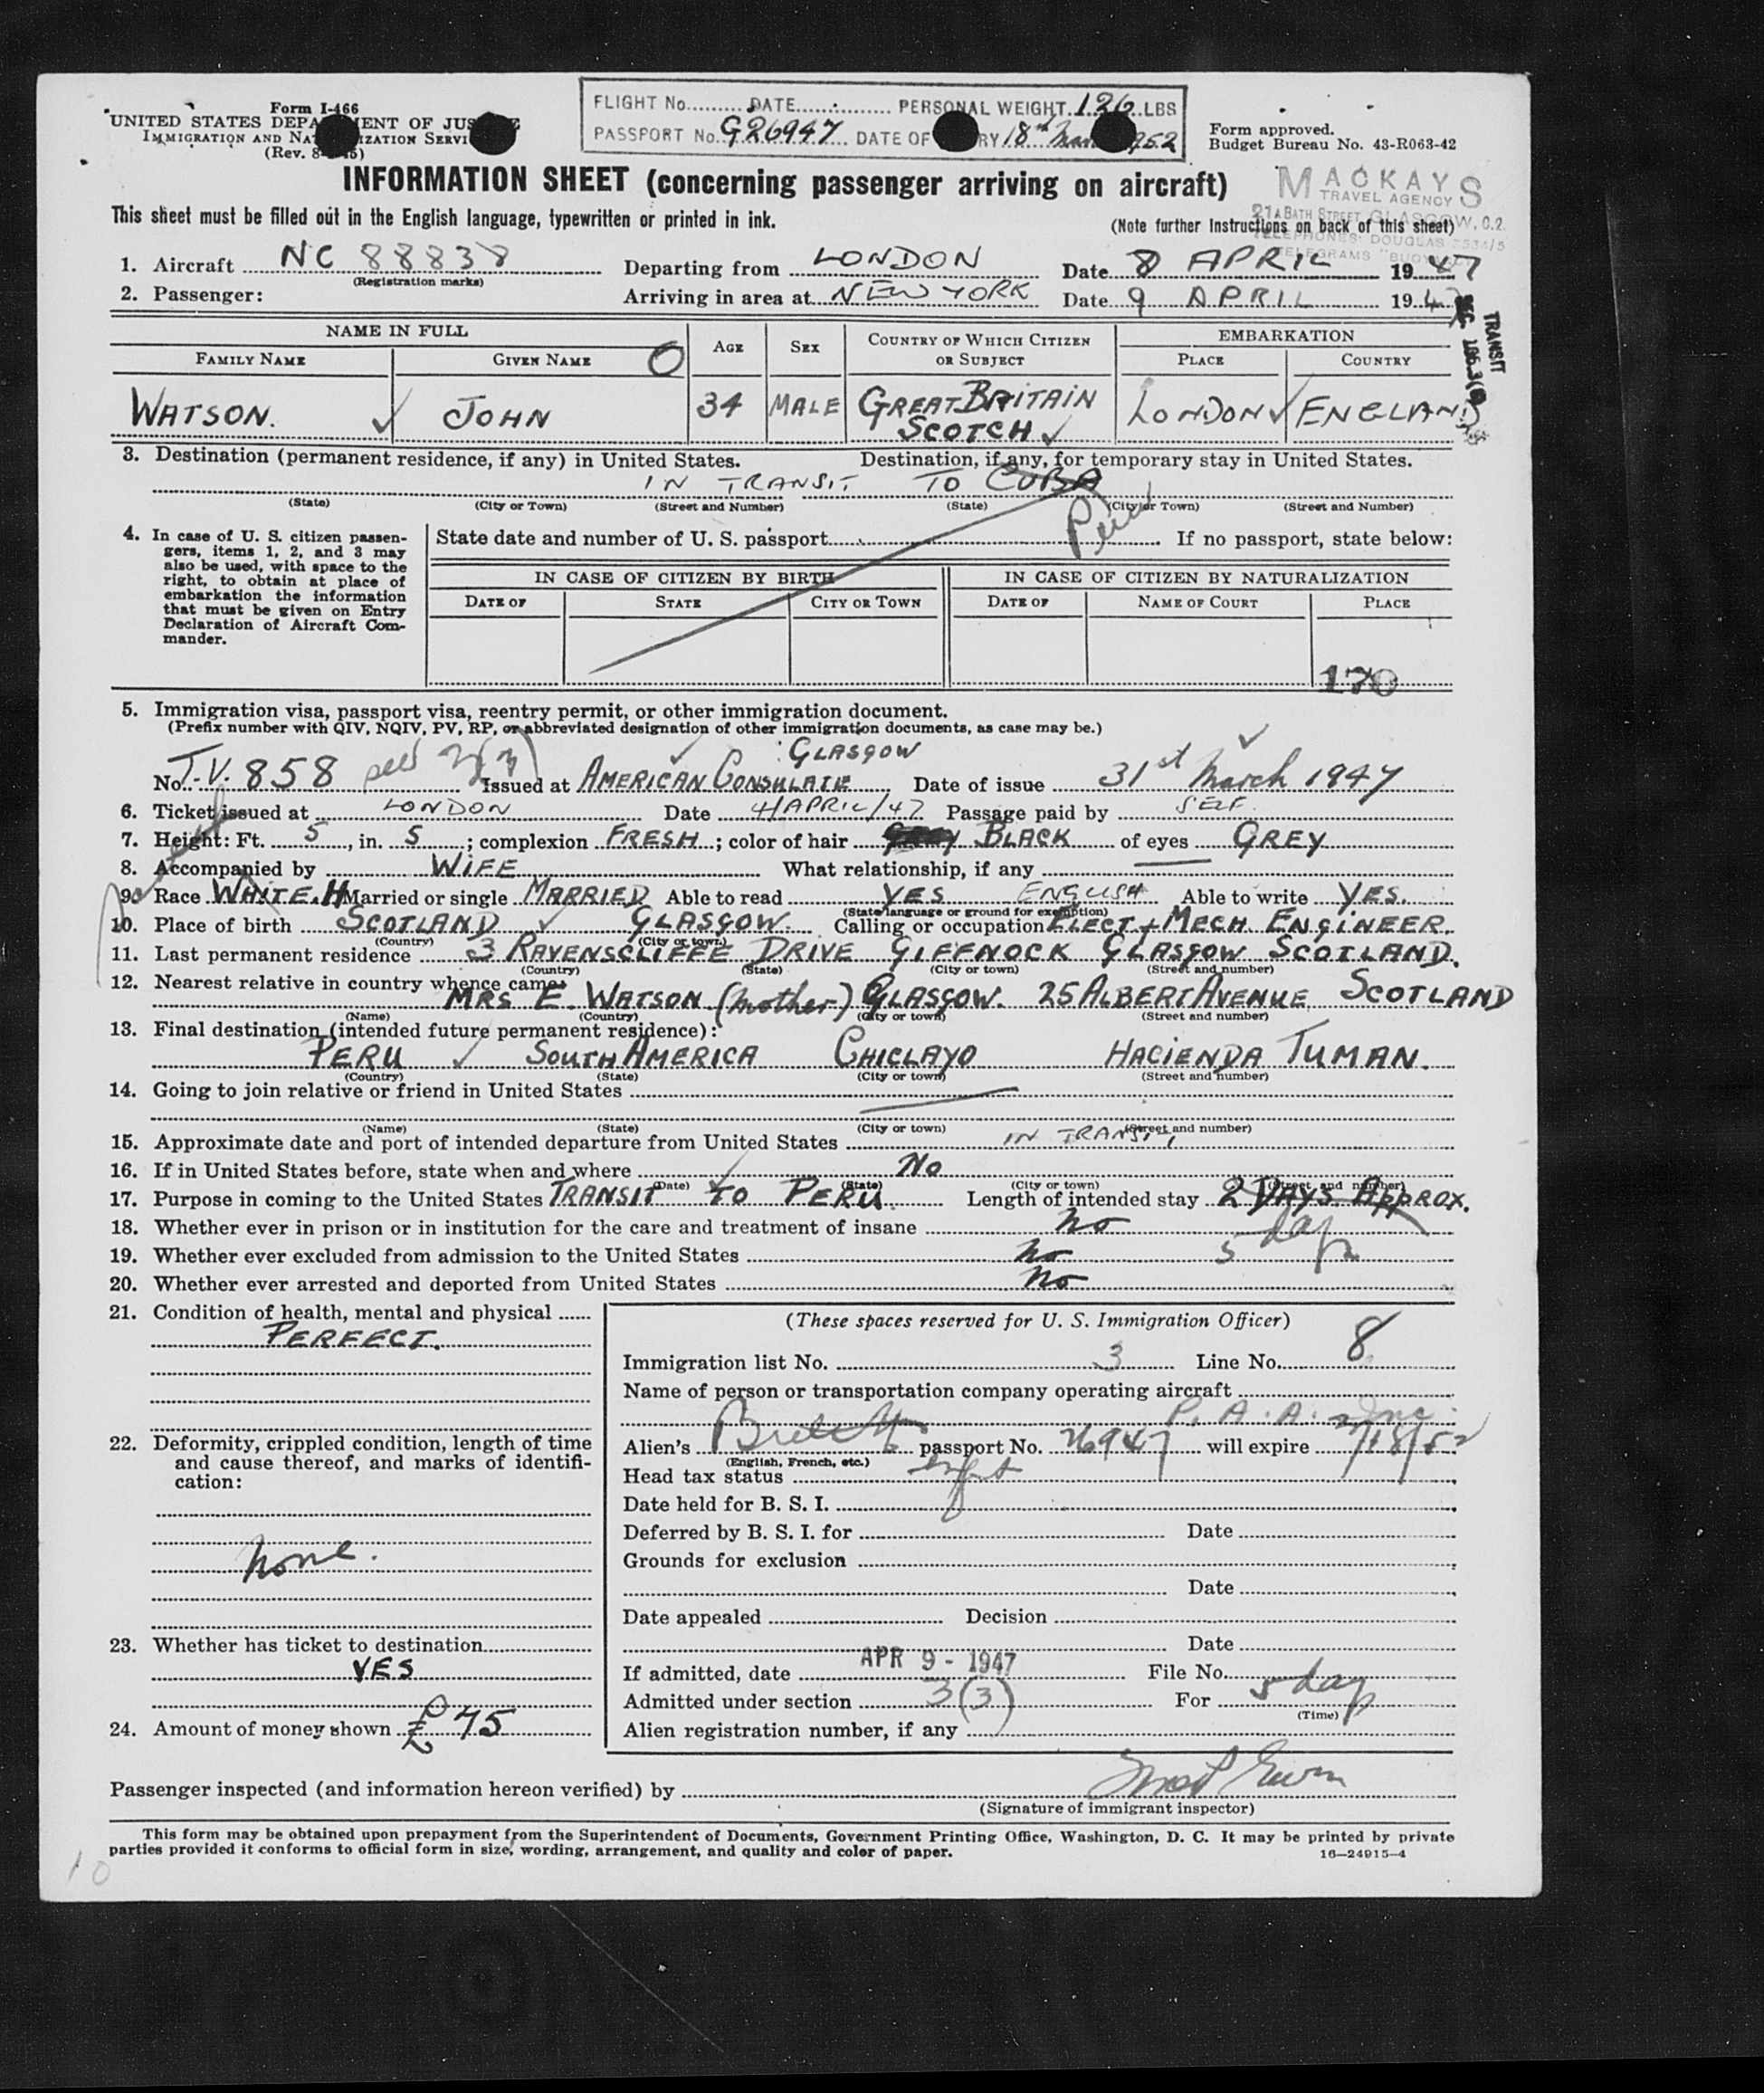 Form I-466
UNITED STATES DEPA ENT OF JUS
IMMIGRATION AND NA IZATION SERVI
(Rev. 8- )
FLIGHT No......... DATE............... PERSONAL WEIGHT 126 LBS
PASSPORT No. G26947 DATE OF RY 18th Mar 1952
Form approved.
Budget Bureau No. 43-R063-42
INFORMATION SHEET (concerning passenger arriving on aircraft)
MACKAYS
TRAVEL AGENCY
21A BATH STREET GLASGOW, C.2.
This sheet must be filled out in the English language, typewritten or printed in ink.
(Note further Instructions on back of this sheet)
1. Aircraft NC 88838 Departing from LONDON Date 8 APRIL 1947
(Registration marks)
2. Passenger: Arriving in area at NEW YORK Date 9 APRIL 1947
TRANSIT
NAME IN FULL AGE SEX COUNTRY OF WHICH CITIZEN OR SUBJECT EMBARKATION
FAMILY NAME GIVEN NAME O PLACE COUNTRY
WATSON. JOHN 34 MALE GREAT BRITAIN LONDON ENGLAND
SCOTCH
3. Destination (permanent residence, if any) in United States. Destination, if any, for temporary stay in United States.
IN TRANSIT TO CUBA
Peru
(State) (City or Town) (Street and Number) (State) (City or Town) (Street and Number)
4. In case of U. S. citizen passengers, items 1, 2, and 3 may also be used, with space to the right, to obtain at place of embarkation the information that must be given on Entry Declaration of Aircraft Commander.
State date and number of U. S. passport If no passport, state below:
IN CASE OF CITIZEN BY BIRTH IN CASE OF CITIZEN BY NATURALIZATION
DATE OF STATE CITY OR TOWN DATE OF NAME OF COURT PLACE
170
5. Immigration visa, passport visa, reentry permit, or other immigration document.
(Prefix number with QIV, NQIV, PV, RP, or abbreviated designation of other immigration documents, as case may be.)
GLASGOW
No. T.V. 858 Issued at AMERICAN CONSULATE Date of issue 31st March 1947
6. Ticket issued at LONDON Date 4/APRIL/47 Passage paid by SELF.
7. Height: Ft. 5, in. 5; complexion FRESH; color of hair BLACK of eyes GREY
8. Accompanied by WIFE What relationship, if any
9. Race WHITE. Married or single MARRIED Able to read YES ENGLISH Able to write YES.
(State language or ground for exemption)
10. Place of birth SCOTLAND GLASGOW. Calling or occupation ELECT + MECH ENGINEER.
(Country) (City or town)
11. Last permanent residence 3 RAVENSCLIFFE DRIVE GIFFNOCK GLASGOW SCOTLAND.
(Country) (State) (City or town) (Street and number)
12. Nearest relative in country whence came:
MRS E. WATSON (Mother) GLASGOW. 25 ALBERT AVENUE SCOTLAND
(Name) (Country) (City or town) (Street and number)
13. Final destination (intended future permanent residence):
PERU SOUTH AMERICA CHICLAYO HACIENDA TUMAN.
(Country) (State) (City or town) (Street and number)
14. Going to join relative or friend in United States
(Name) (State) (City or town) (Street and number)
15. Approximate date and port of intended departure from United States IN TRANSIT,
16. If in United States before, state when and where No
(Date) (State) (City or town) (Street and number)
17. Purpose in coming to the United States TRANSIT TO PERU. Length of intended stay 2 DAYS APPROX.
5 days
18. Whether ever in prison or in institution for the care and treatment of insane No
19. Whether ever excluded from admission to the United States No
20. Whether ever arrested and deported from United States No
21. Condition of health, mental and physical
PERFECT.
22. Deformity, crippled condition, length of time and cause thereof, and marks of identification:
None.
23. Whether has ticket to destination
YES
24. Amount of money shown £75
(These spaces reserved for U. S. Immigration Officer)
Immigration list No. 3 Line No. 8
Name of person or transportation company operating aircraft
P. A. A. Inc.
Alien's British passport No. 26947 will expire 3/18/52
(English, French, etc.)
Head tax status
Date held for B. S. I.
Deferred by B. S. I. for Date
Grounds for exclusion
Date
Date appealed Decision
Date
If admitted, date APR 9 - 1947 File No.
Admitted under section 3(3) For 5 days
(Time)
Alien registration number, if any
Passenger inspected (and information hereon verified) by
(Signature of immigrant inspector)
This form may be obtained upon prepayment from the Superintendent of Documents, Government Printing Office, Washington, D. C. It may be printed by private
parties provided it conforms to official form in size, wording, arrangement, and quality and color of paper.
16—24915-4
10